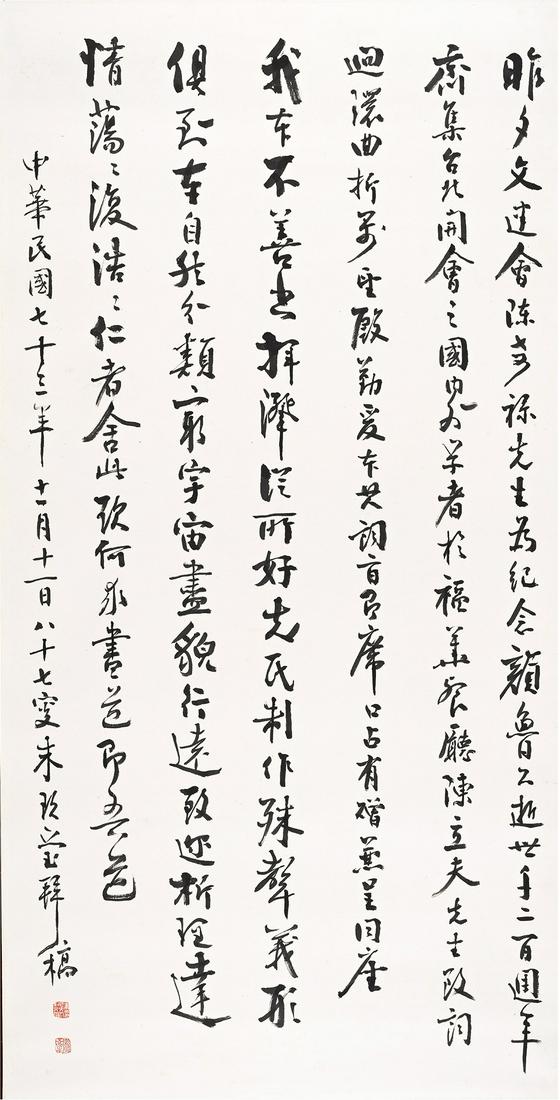 昨夕文建會陳奇祿先生為紀念顏魯公逝世千二百週年
齊集台北開會之國內外學者於福華餐廳陳立夫先生致詞
迴環曲折莊殷勤爰本其詞旨即席口占有贈兼呈同座
我本不善書揮灑從所好先民制作殊聲義形
俱到本自然分類窮宇宙盡貌行遠致迩析理達
情蕩〻復浩〻仁者舍此欲何求書道即吾道
中華民國七十三年十一月十一日八十七叟朱玖瑩拜稿